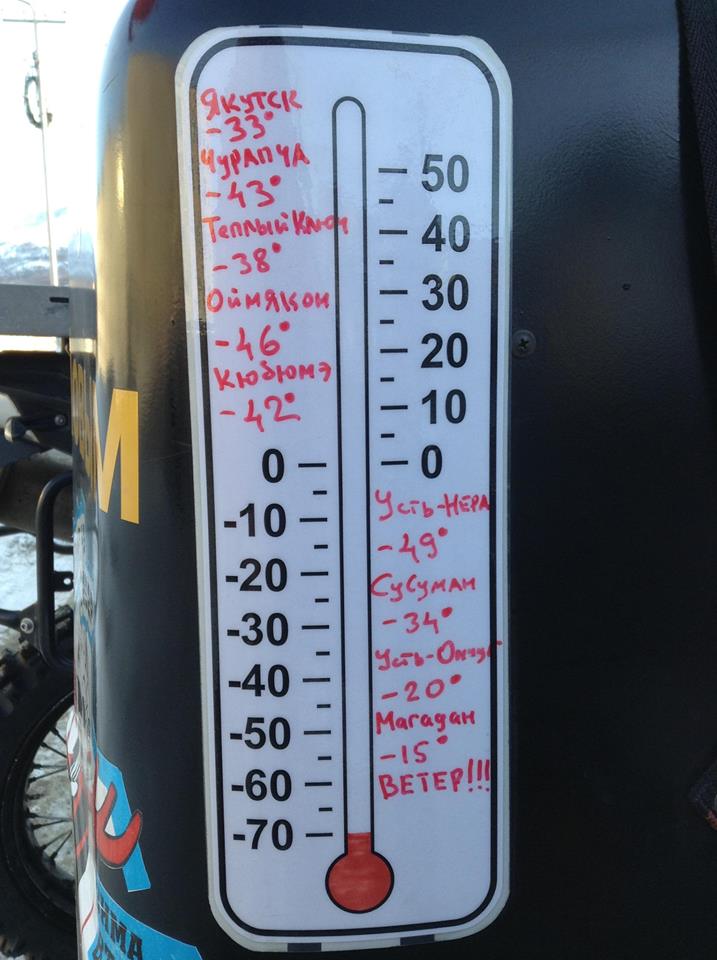 Якутск
-33°
Чурапча
-43°
Теплый Ключ
-38°
Оймякон
-46°
Кюбюмэ
-42°
50
40
30
20
10
0
0
-10
-20
-30
-40
-50
-60
-70
Усть-Нера
-49°
Сусуман
-34°
Усть-Омчуг
-20°
Магадан
-15°
ВЕТЕР!!!
М